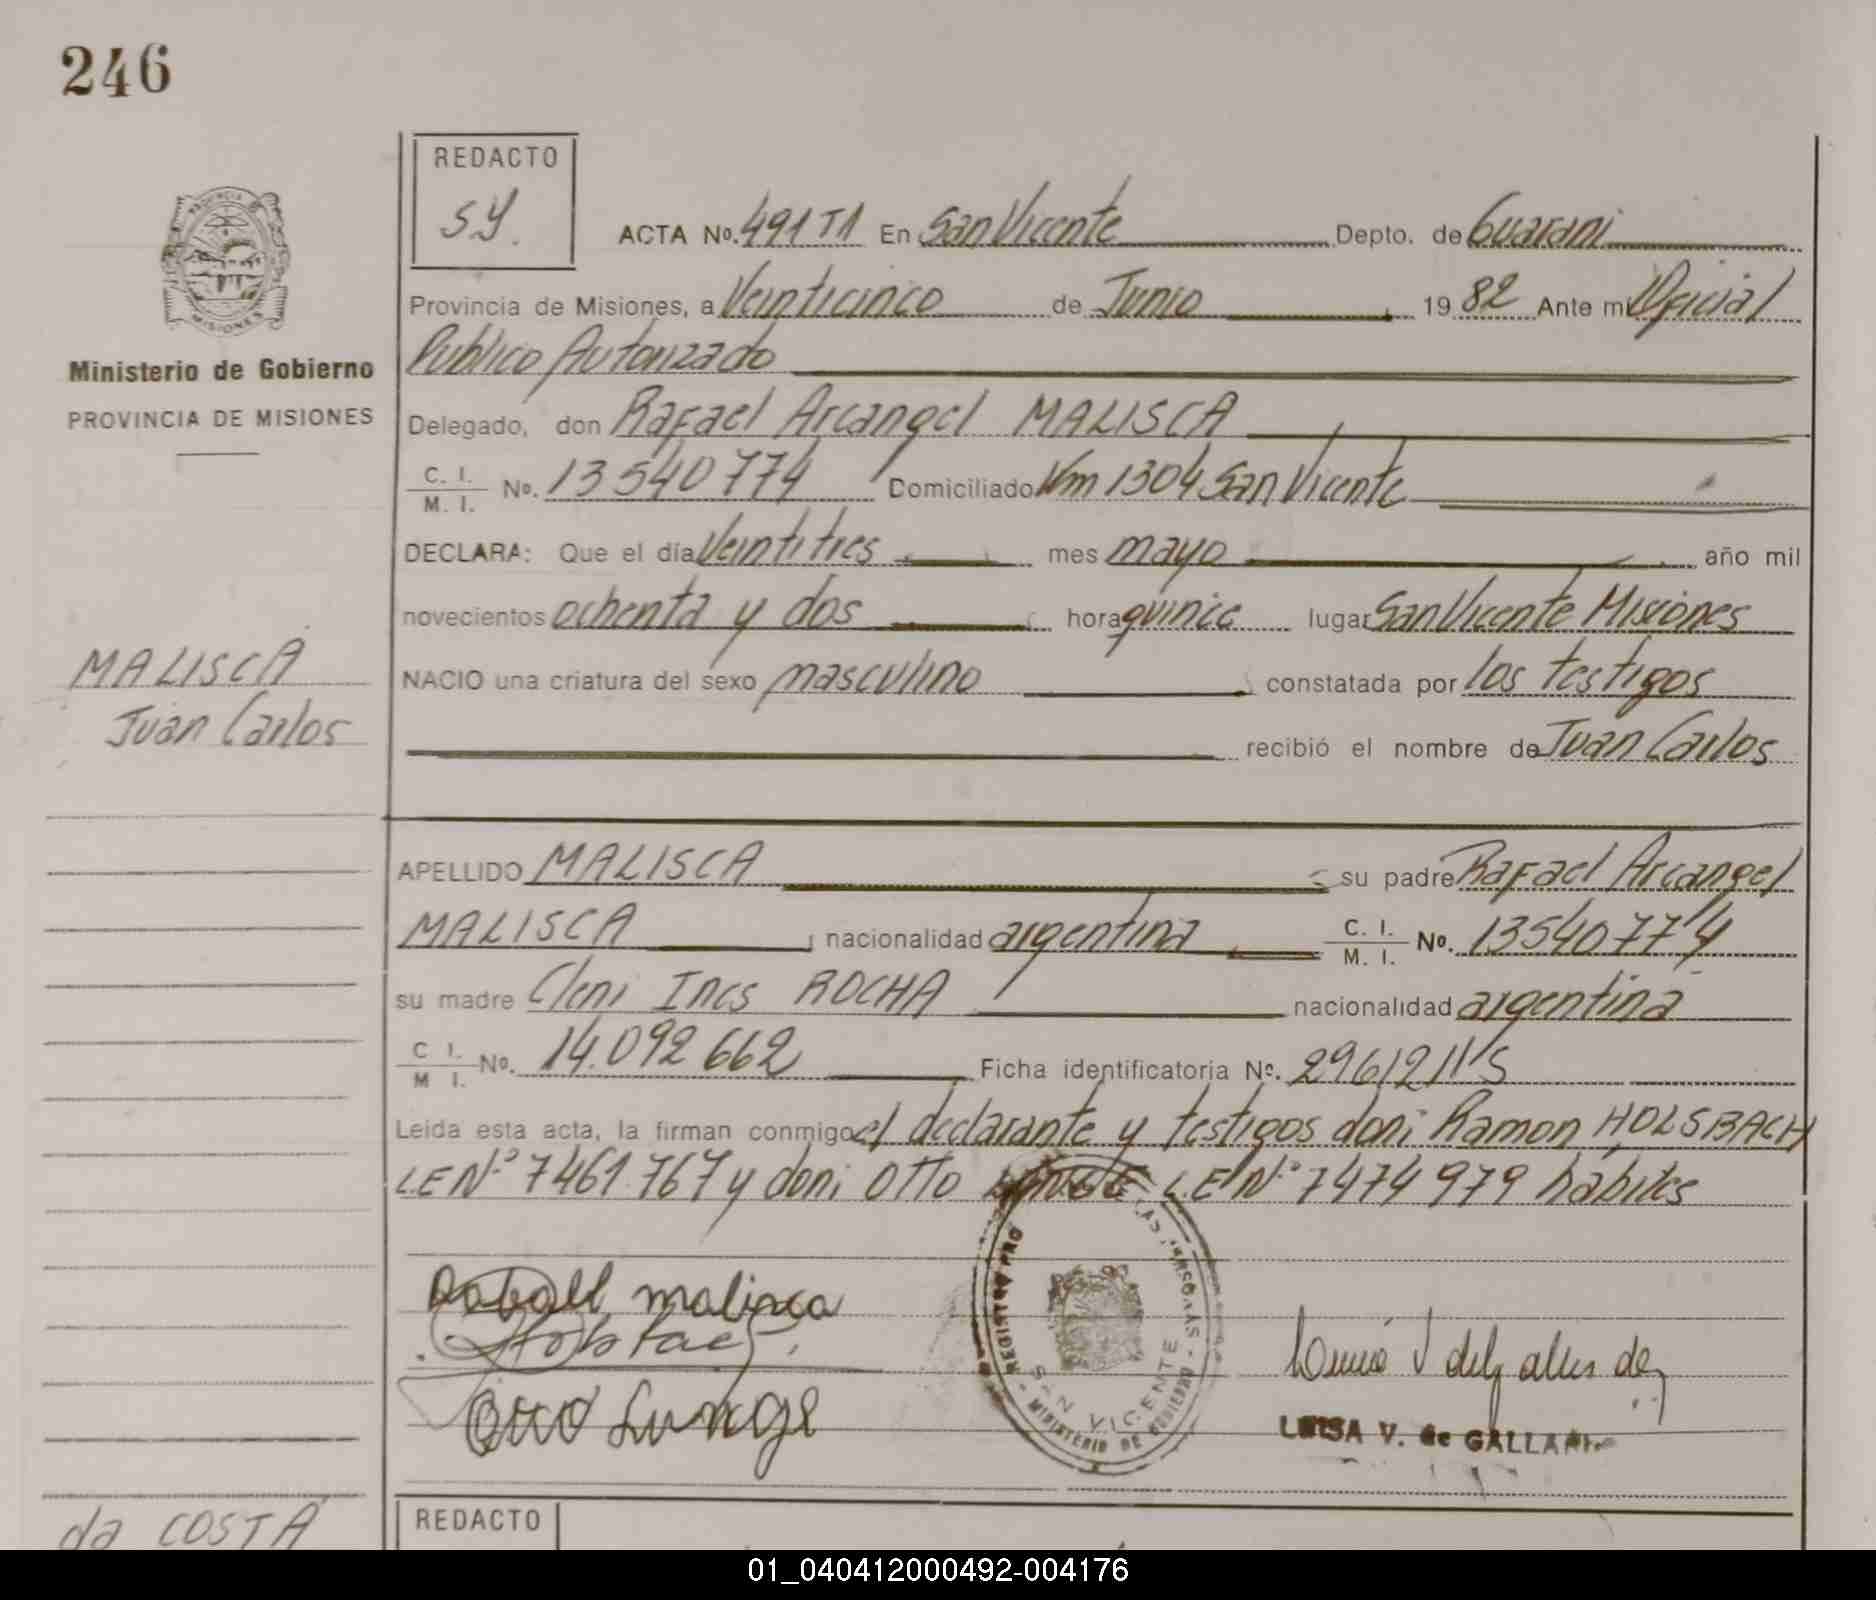 246
REDACTO
SY.
ACTA No. 491 T1 En San Vicente Depto. de Guarani
Provincia de Misiones, a Veinticinco de Junio 19 82 Ante mi Oficial
Publico Autorizado
Ministerio de Gobierno
PROVINCIA DE MISIONES
Delegado, don Rafael Arcangel MALISCA
C. I.
M. I. No. 13540774 Domiciliado Km 1304 San Vicente
DECLARA: Que el día Veintitres mes mayo año mil
novecientos ochenta y dos hora quince lugar San Vicente Misiones
MALISCA
Juan Carlos
NACIO una criatura del sexo masculino constatada por los testigos
recibió el nombre de Juan Carlos
APELLIDO MALISCA su padre Rafael Arcangel
MALISCA nacionalidad argentina C. I. M. I. No. 13540774
su madre Cleni Ines ROCHA nacionalidad argentina
C I. M I. No. 14.092662 Ficha identificatoria No.
Leida esta acta, la firman conmigo el declarante y testigos don: Ramon HOLSBACH
LE Nº 7461.767 y don: Otto LE Nº 7474979 hábiles
malisca
Otto Lunge
REGISTRO PRO LAS PERSONAS
SAN VICENTE
MINISTERIO DE GOBIERNO
LUISA V. de
da COSTA
REDACTO
01_040412000492-004176